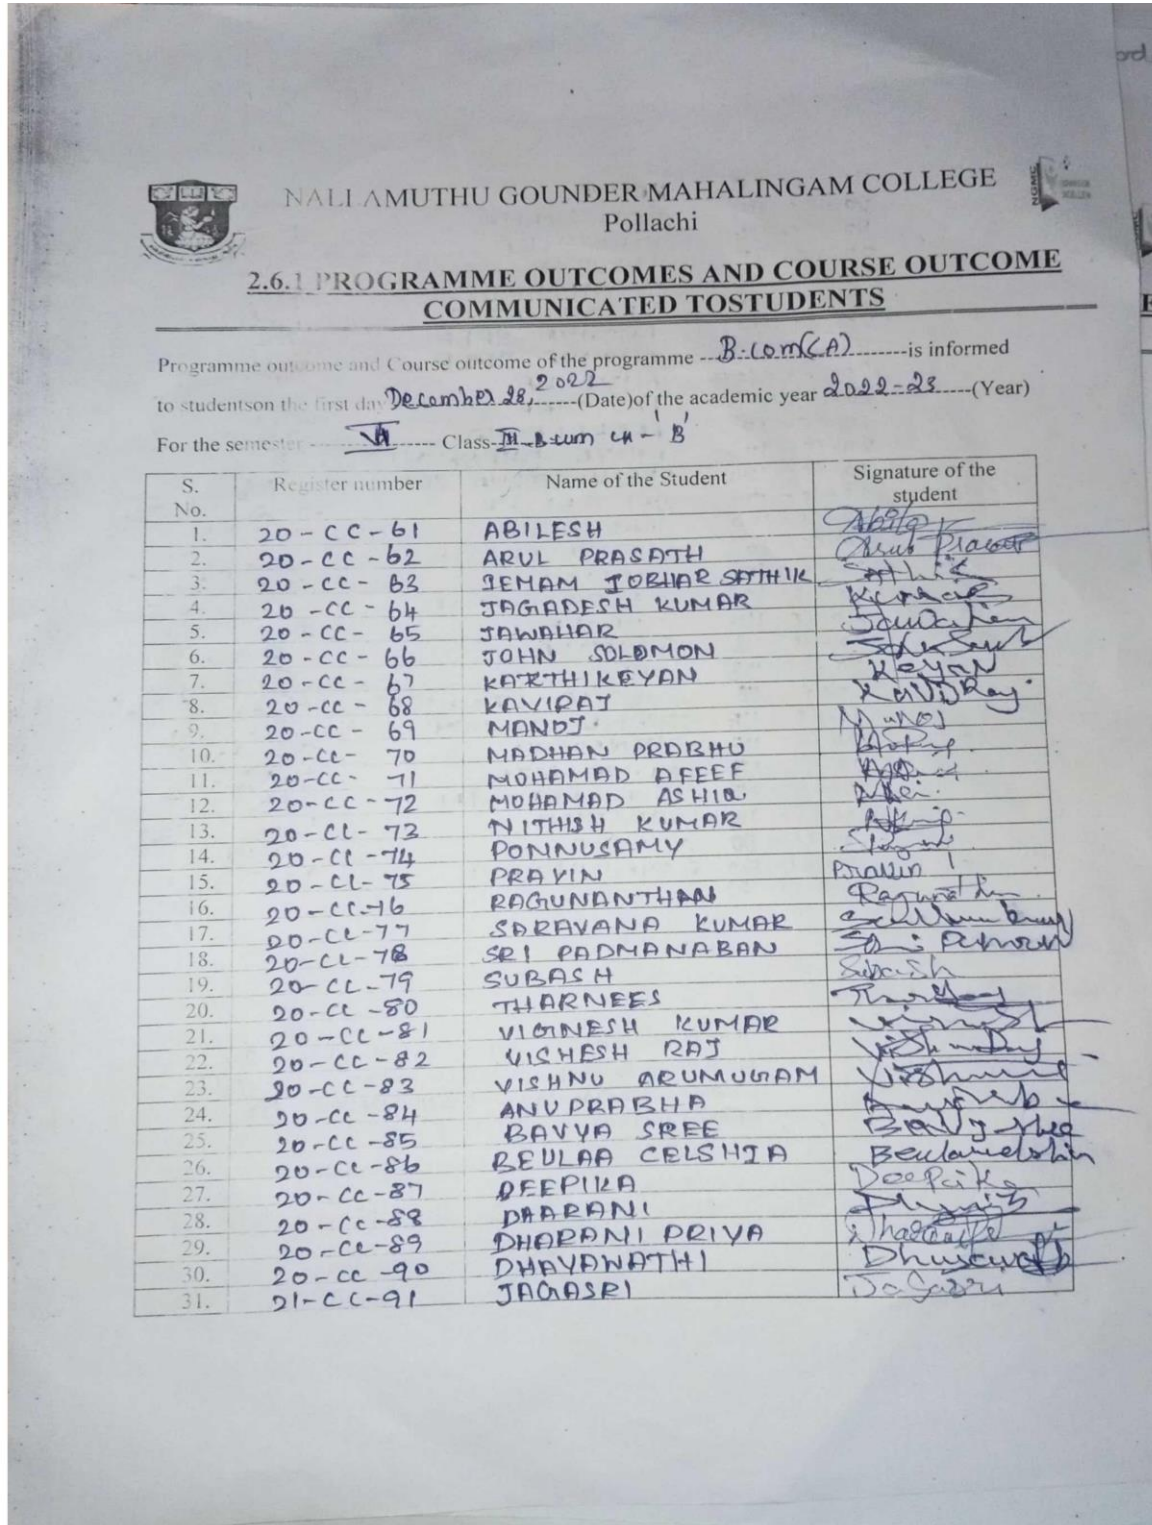 NALLAMUTHU GOUNDER MAHALINGAM COLLEGE
Pollachi
NGMC
2.6.1 PROGRAMME OUTCOMES AND COURSE OUTCOME
COMMUNICATED TOSTUDENTS
Programme outcome and Course outcome of the programme ---B.com(CA)--------is informed
to studentson the first day December 28, 2022------(Date)of the academic year 2022-23-----(Year)
For the semester -------- VI ------ Class-III-B.com CA - 'B'
S. No. Register number Name of the Student Signature of the student
1. 20-CC-61 ABILESH
2. 20-CC-62 ARUL PRASATH Arul Prasath
3. 20-CC-63 IEMAM JOBHAR SATHIK Sathik
4. 20-CC-64 JAGADESH KUMAR
5. 20-CC-65 JAWAHAR
6. 20-CC-66 JOHN SOLOMON
7. 20-CC-67 KARTHIKEYAN Keyan
8. 20-CC-68 KAVIRAJ KaviRaj
9. 20-CC-69 MANOJ Manoj
10. 20-CC-70 MADHAN PRABHU
11. 20-CC-71 MOHAMAD AFEEF
12. 20-CC-72 MOHAMAD ASHIQ
13. 20-CC-73 NITHISH KUMAR
14. 20-CC-74 PONNUSAMY
15. 20-CC-75 PRAVIN Pravin
16. 20-CC-76 RAGUNANTHAN
17. 20-CC-77 SARAVANA KUMAR
18. 20-CC-78 SRI PADMANABAN
19. 20-CC-79 SUBASH Subash
20. 20-CC-80 THARNEES
21. 20-CC-81 VIGINESH KUMAR
22. 20-CC-82 VISHESH RAJ
23. 20-CC-83 VISHNU ARUMUGAM
24. 20-CC-84 ANUPRABHA
25. 20-CC-85 BAVYA SREE
26. 20-CC-86 BEULAA CELSHIA
27. 20-CC-87 DEEPIKA Deepika
28. 20-CC-88 DAARANI
29. 20-CC-89 DHARANI PRIYA
30. 20-CC-90 DHAYAWATHI
31. 21-CC-91 JAGASRI Jagasri